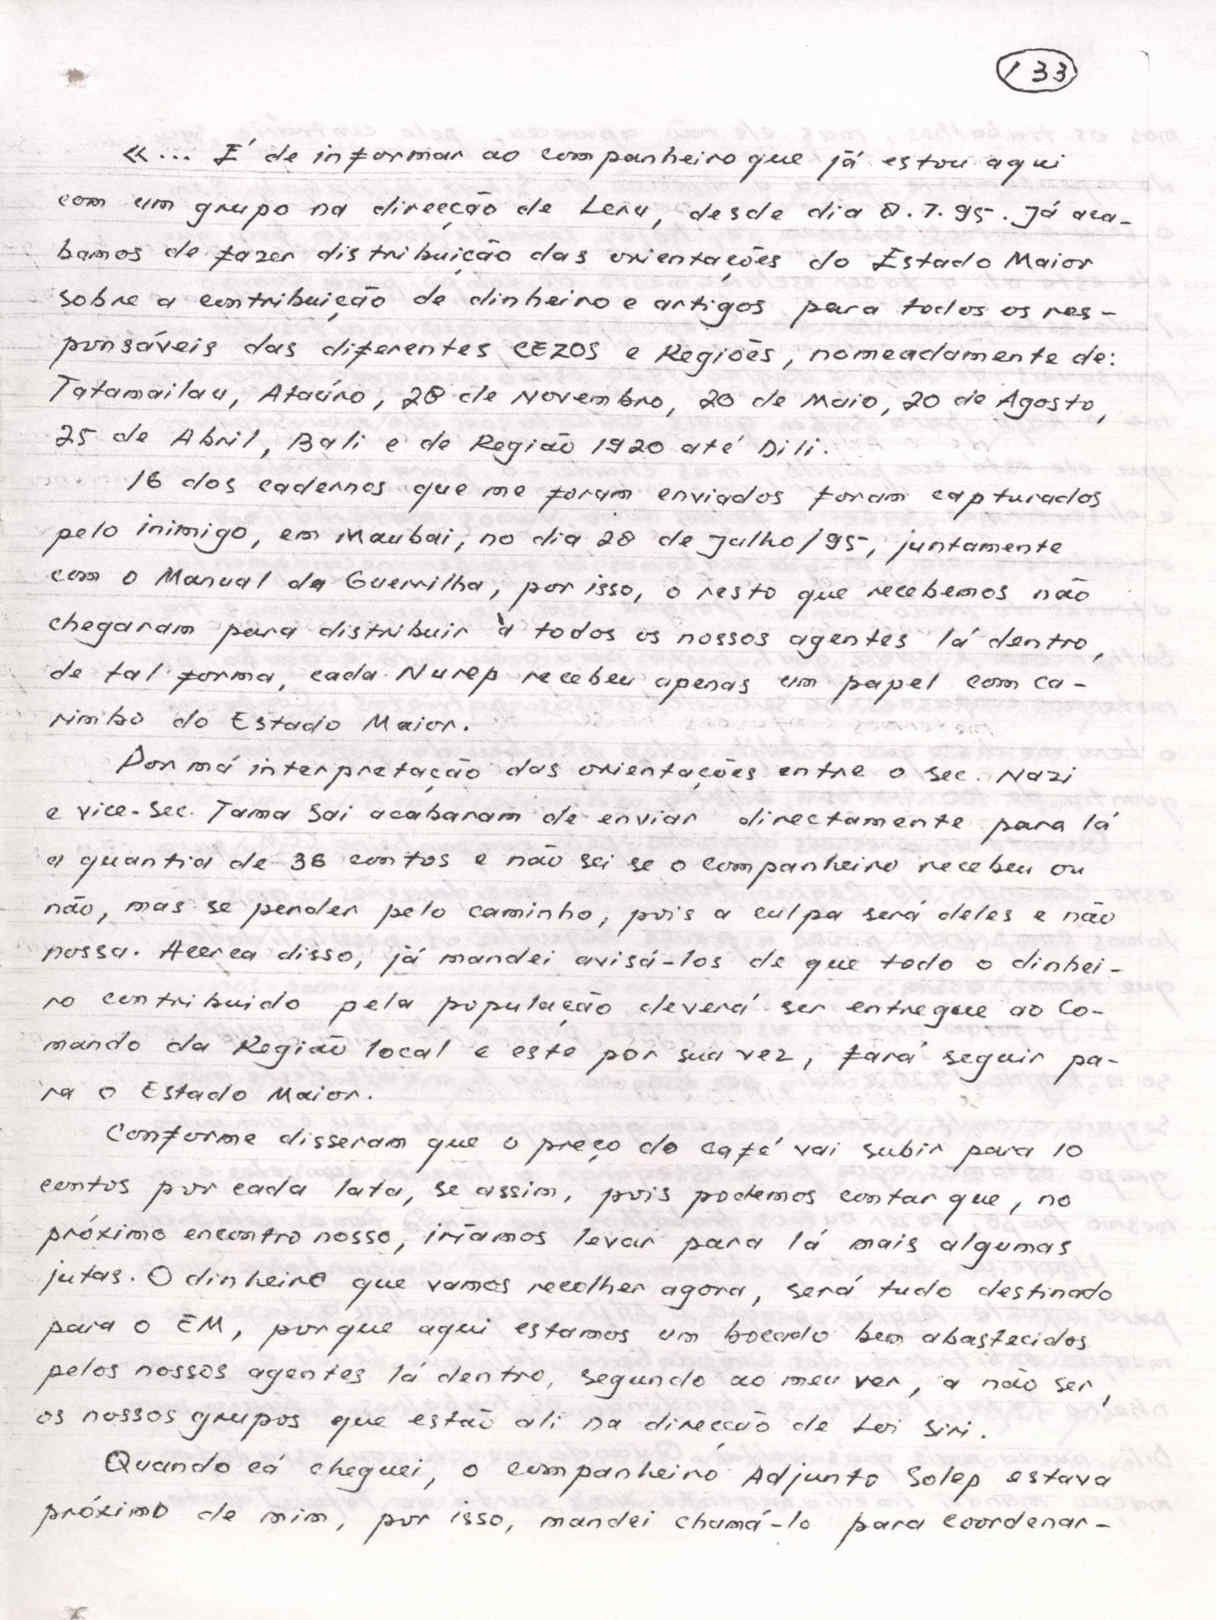 133
«... É de informar ao companheiro que já estou aqui
com um grupo na direcção de Leru, desde dia 8.7.95. Já aca-
bamos de fazer distribuição das orientações do Estado Maior
sobre a contribuição de dinheiro e artigos para todos os res-
ponsáveis das diferentes CEZOS e Regiões, nomeadamente de:
Tatamailau, Ataúro, 28 de Novembro, 20 de Maio, 20 de Agosto,
25 de Abril, Bali e de Região 1920 até Dili.
16 dos cadernos que me foram enviados foram capturados
pelo inimigo, em Maubai, no dia 28 de Julho/95, juntamente
com o Manual da Guerrilha, por isso, o resto que recebemos não
chegaram para distribuir à todos os nossos agentes lá dentro,
de tal forma, cada Nurep recebeu apenas um papel com ca-
rimbo do Estado Maior.
Por má interpretação das orientações entre o sec. Nazi
e vice-Sec. Tama Sai acabaram de enviar directamente para lá
a quantia de 36 contos e não sei se o companheiro recebeu ou
não, mas se perder pelo caminho, pois a culpa será deles e não
nossa. Acerca disso, já mandei avisá-los de que todo o dinhei-
ro contribuido pela população deverá ser entregue ao Co-
mando da Região local e este por sua vez, fará seguir pa-
ra o Estado Maior.
Conforme disseram que o preço do café vai subir para 10
contos por cada lata, se assim, pois podemos contar que, no
próximo encontro nosso, iríamos levar para lá mais algumas
jutas. O dinheiro que vamos recolher agora, será tudo destinado
para o EM, porque aqui estamos um bocado bem abastecidos
pelos nossos agentes lá dentro, segundo ao meu ver, a não ser,
os nossos grupos que estão ali na direcção de Loi Siri.
Quando cá cheguei, o companheiro Adjunto Solep estava
próximo de mim, por isso, mandei chamá-lo para coordenar-